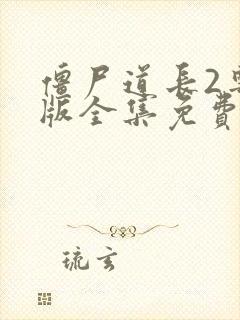 僵尸道长2
版全集免费
琉玄